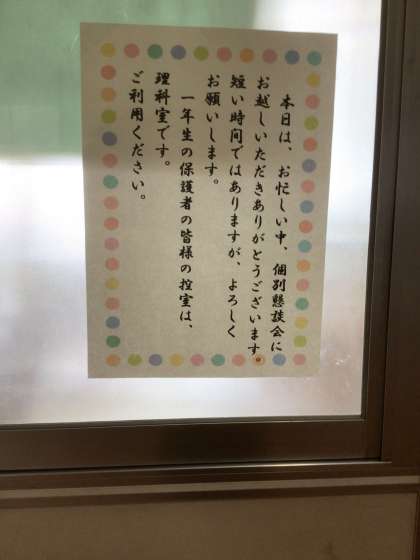 本日は、お忙しい中、個別懇談会に
お越しいただきありがとうございます。
短い時間ではありますが、よろしく
お願いします。
一年生の保護者の皆様の控室は、
理科室です。
ご利用ください。